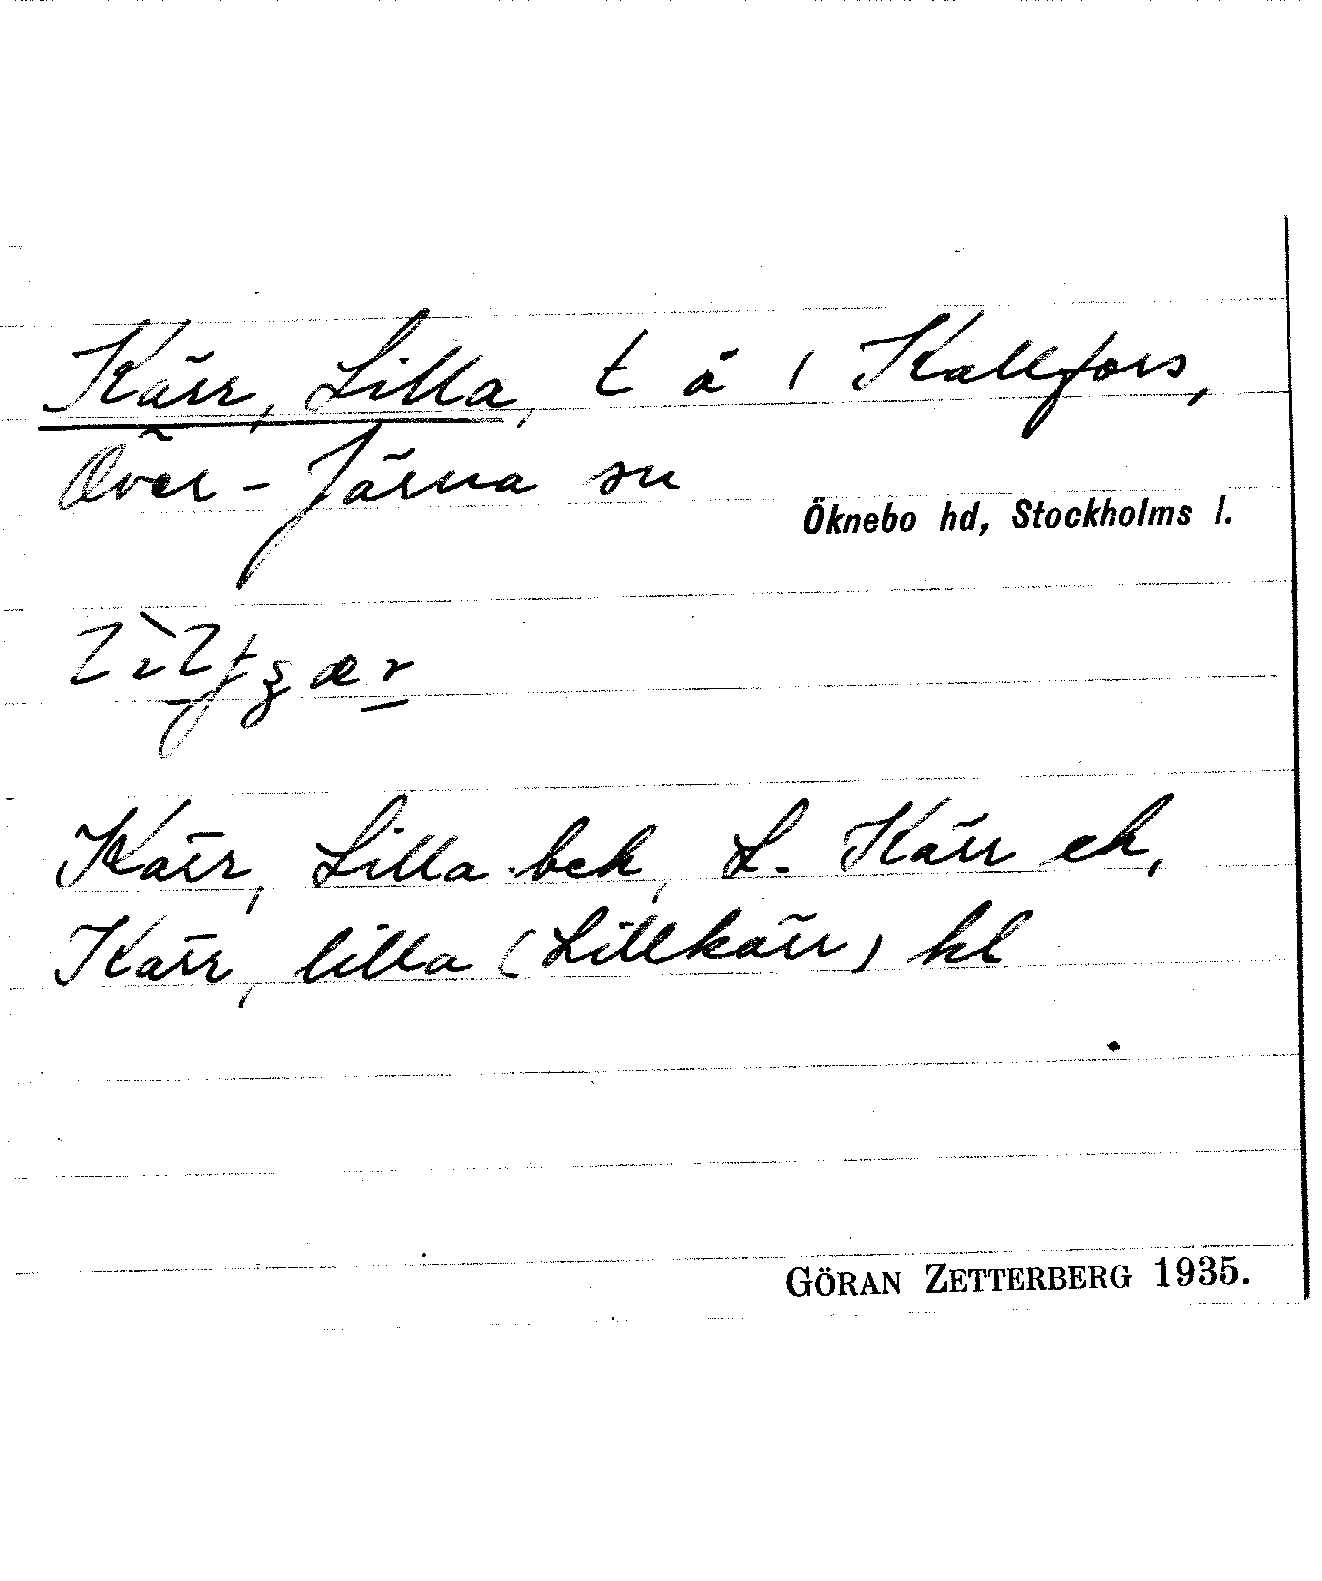 Kärr, Lilla, t å 1 Kallfors,
Över-Järna sn
Öknebo hd, Stockholms l.
Kärr, Lilla bek, L. Kärr ek,
Kärr, lilla (Lillkärr) hl
GÖRAN ZETTERBERG 1935.